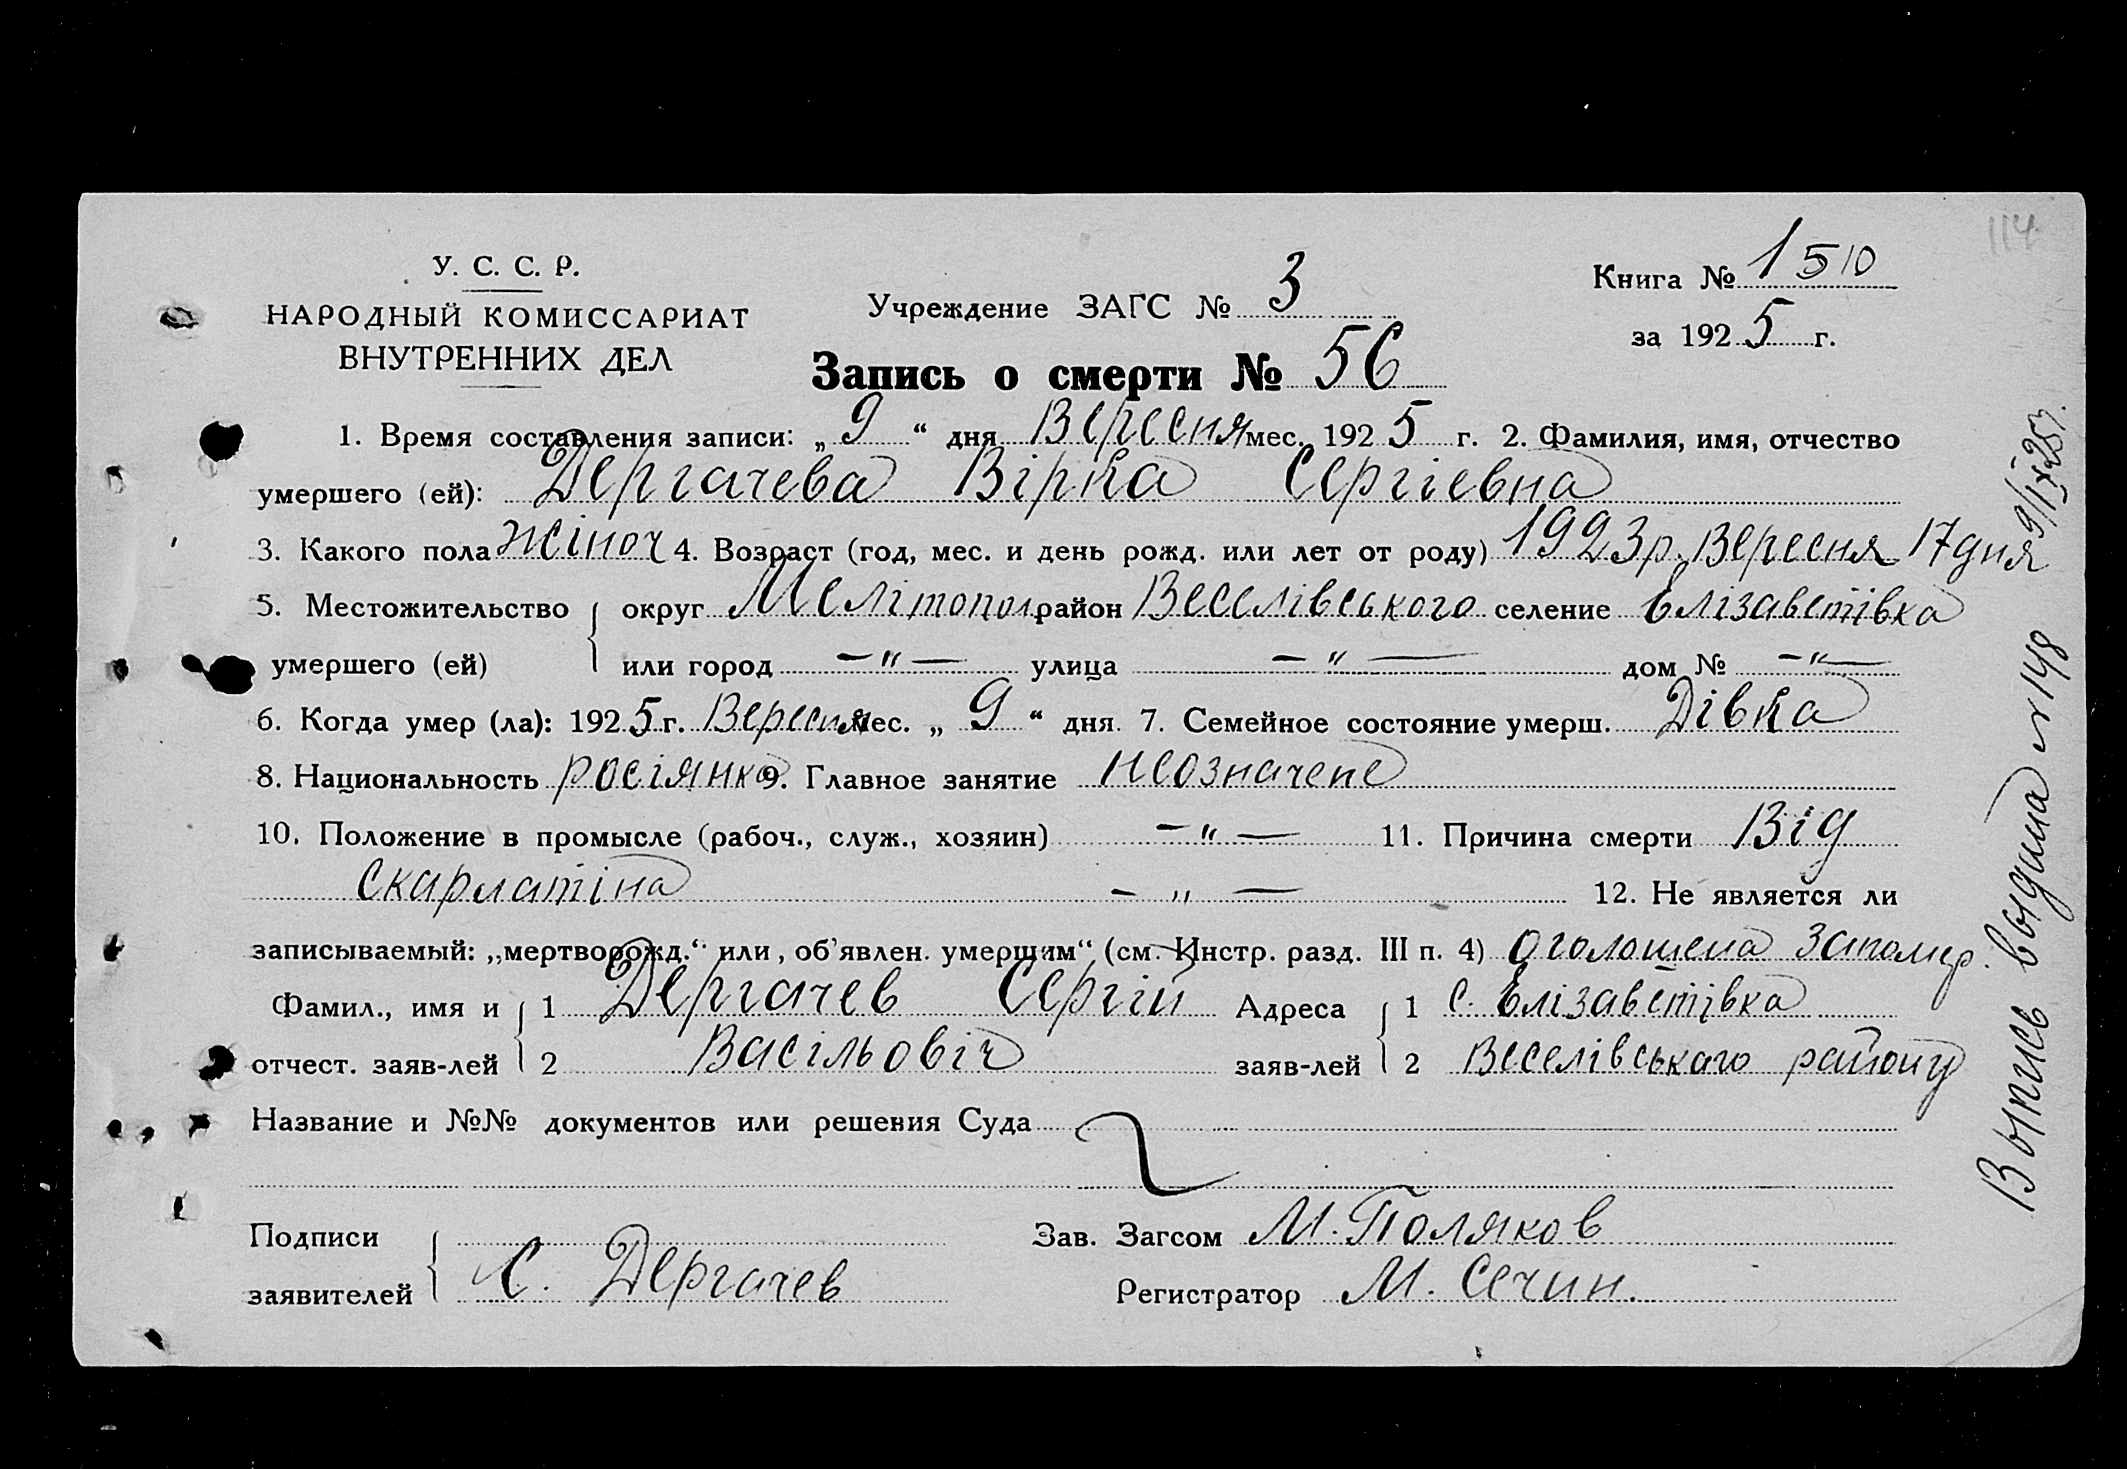 114
У. С. С. Р.
НАРОДНЫЙ КОМИССАРИАТ
ВНУТРЕННИХ ДЕЛ
Учреждение ЗАГС № 3
Книга № 1510
за 1925 г.
Запись о смерти № 56
1. Время составления записи: „ 9 “ дня Вересня мес. 1925 г. 2. Фамилия, имя, отчество
умершего (ей): Дергачева Вірка Сергіевна
3. Какого пола жіноч 4. Возраст (год, мес. и день рожд. или лет от роду) 1923р. Вересня 17 дня
5. Местожительство округ Мелітопол район Веселівського селение Елізаветівка
умершего (ей) или город –"– улица –"– дом № –"–
6. Когда умер (ла): 1925 г. Вересня мес. „ 9 “ дня. 7. Семейное состояние умерш. Дівка
8. Национальность росіянка 9. Главное занятие неозначене
10. Положение в промысле (рабоч., служ., хозяин) –"– 11. Причина смерти Від
Скарлатіна –"– 12. Не является ли
записываемый: „мертворожд.“ или „об'явлен. умершим“ (см. Инстр. разд. III п. 4) оголошена запомер.
Фамил., имя и 1 Дергачев Сергій Адреса 1 с. Елізаветівка
отчест. заяв-лей 2 Васільовіч заяв-лей 2 Веселівськаго району
Название и №№ документов или решения Суда
Подписи Зав. Загсом М. Поляков
заявителей С. Дергачев Регистратор М. Сечин.
Выпись выдана № 148 9/IX-25г.